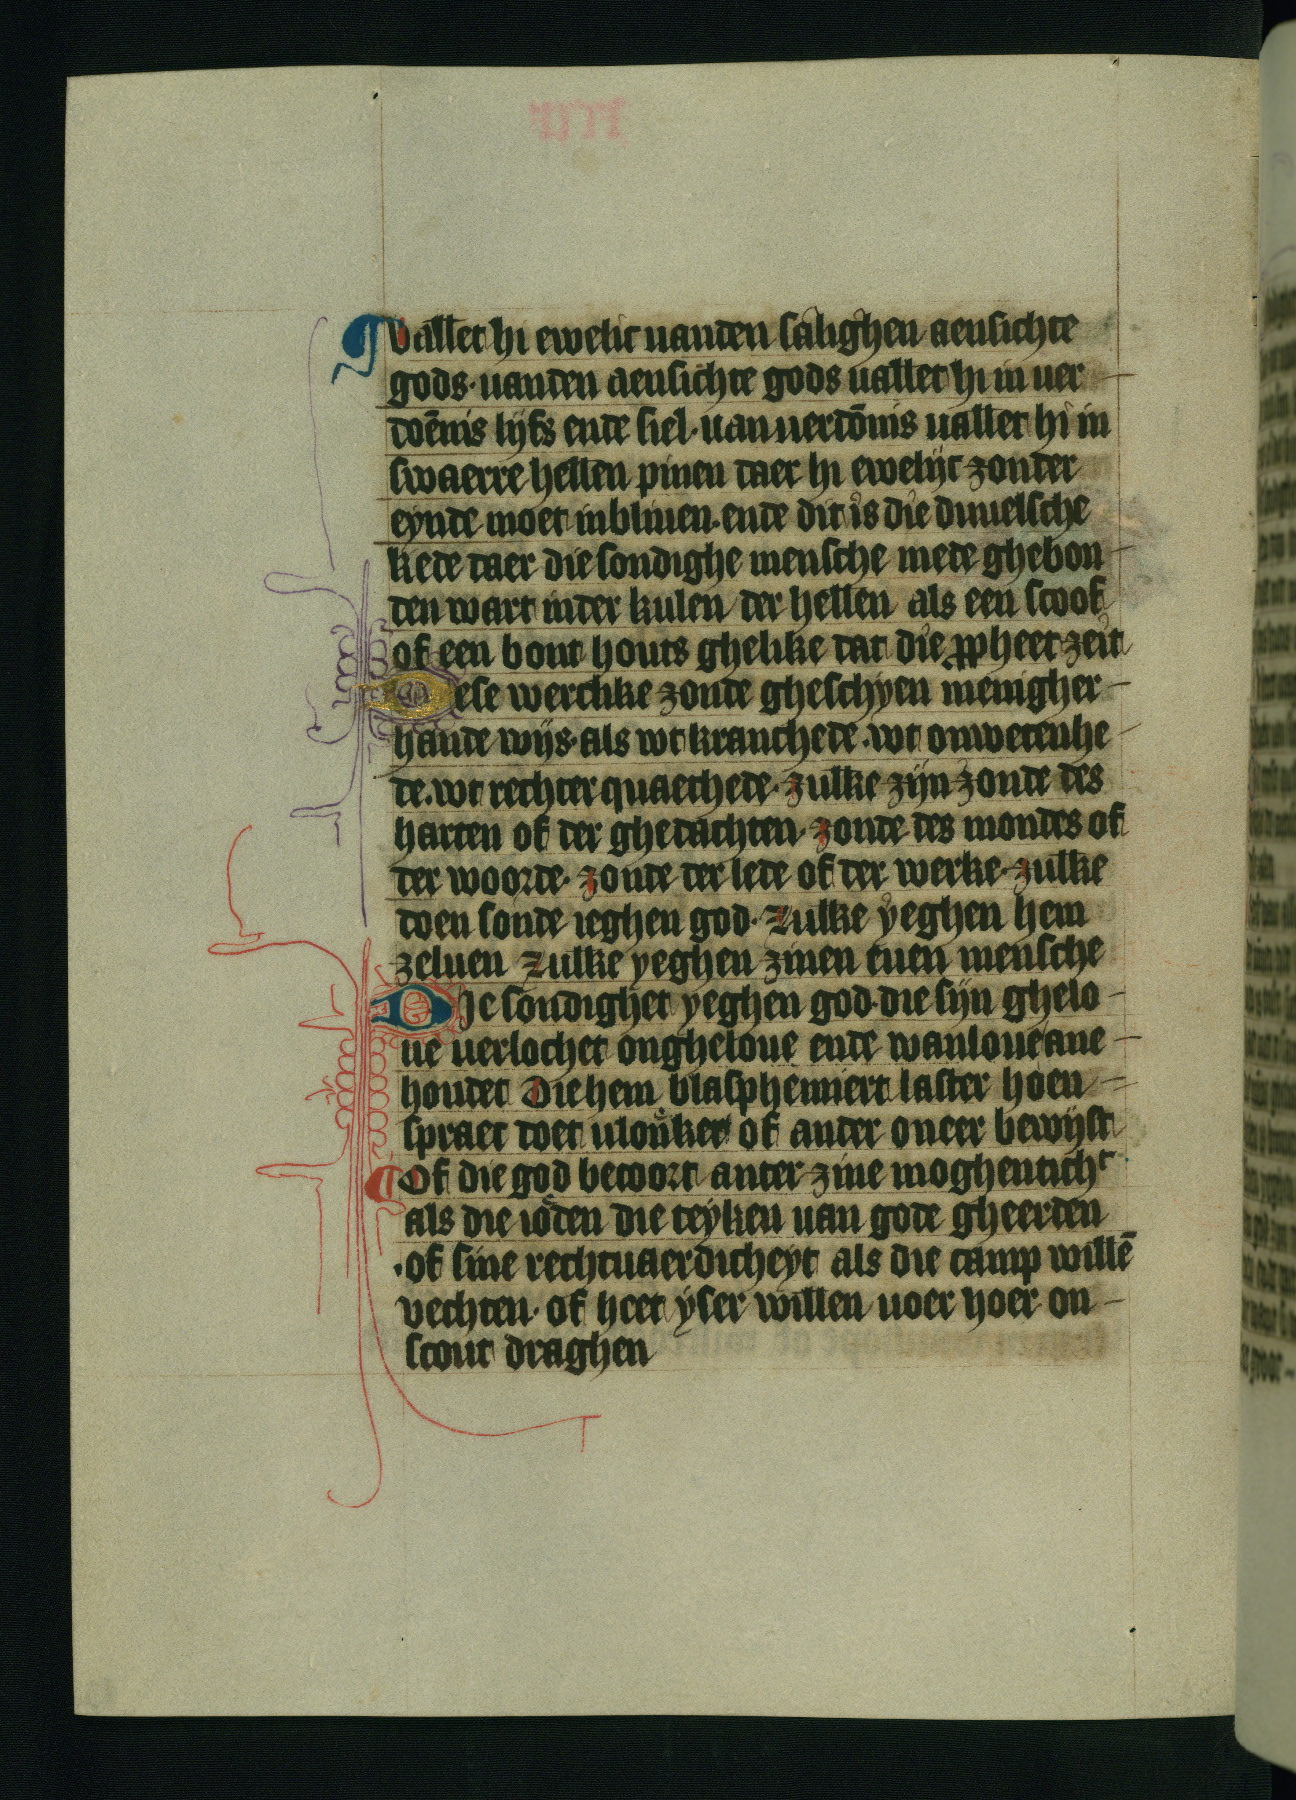 ¶ Vallet hi ewelic vanden salighen aensichte
gods · vanden aensichte gods vallet hi in ver
doēnis lijfs ende siel · van verdōnis vallet hi in
swaerre hellen pinen daer hi ewelijc zonder
eynde moet in bliuen · ende dit is die duuelsche
kede daer die sondighe mensche mede ghebon
den wart inder kulen der hellen als een scoof
of een bont houts ghelike dat die ꝓpheet zeit
Dese werclike zonde gheschyen menigher
hande wijs · als wt kranchede · wt onwetenhe
de · wt rechter quaethede · zulke zijn zonde des
harten of der ghedachten · zonde des mondes of
der woorde · zonde der lede of der werke · zulke
doen sonde ieghen god · Zulke yeghen hem
zeluen Zulke yeghen zinen euen mensche
Die sondighet yeghen god · die sijn ghelo
ue verlochet onghelove ende wanloue ane
houdet Die hem blasphemiert laster hoen
spraec doet vlouket of ander oneer bewijst
¶ Of die god becoort ander zine moghentich
als die ioden die teyken van gode gheerden
· of sine rechtuaerdicheyt als die camp willē
vechten · of heet yser willen voer hoer on
scout draghen